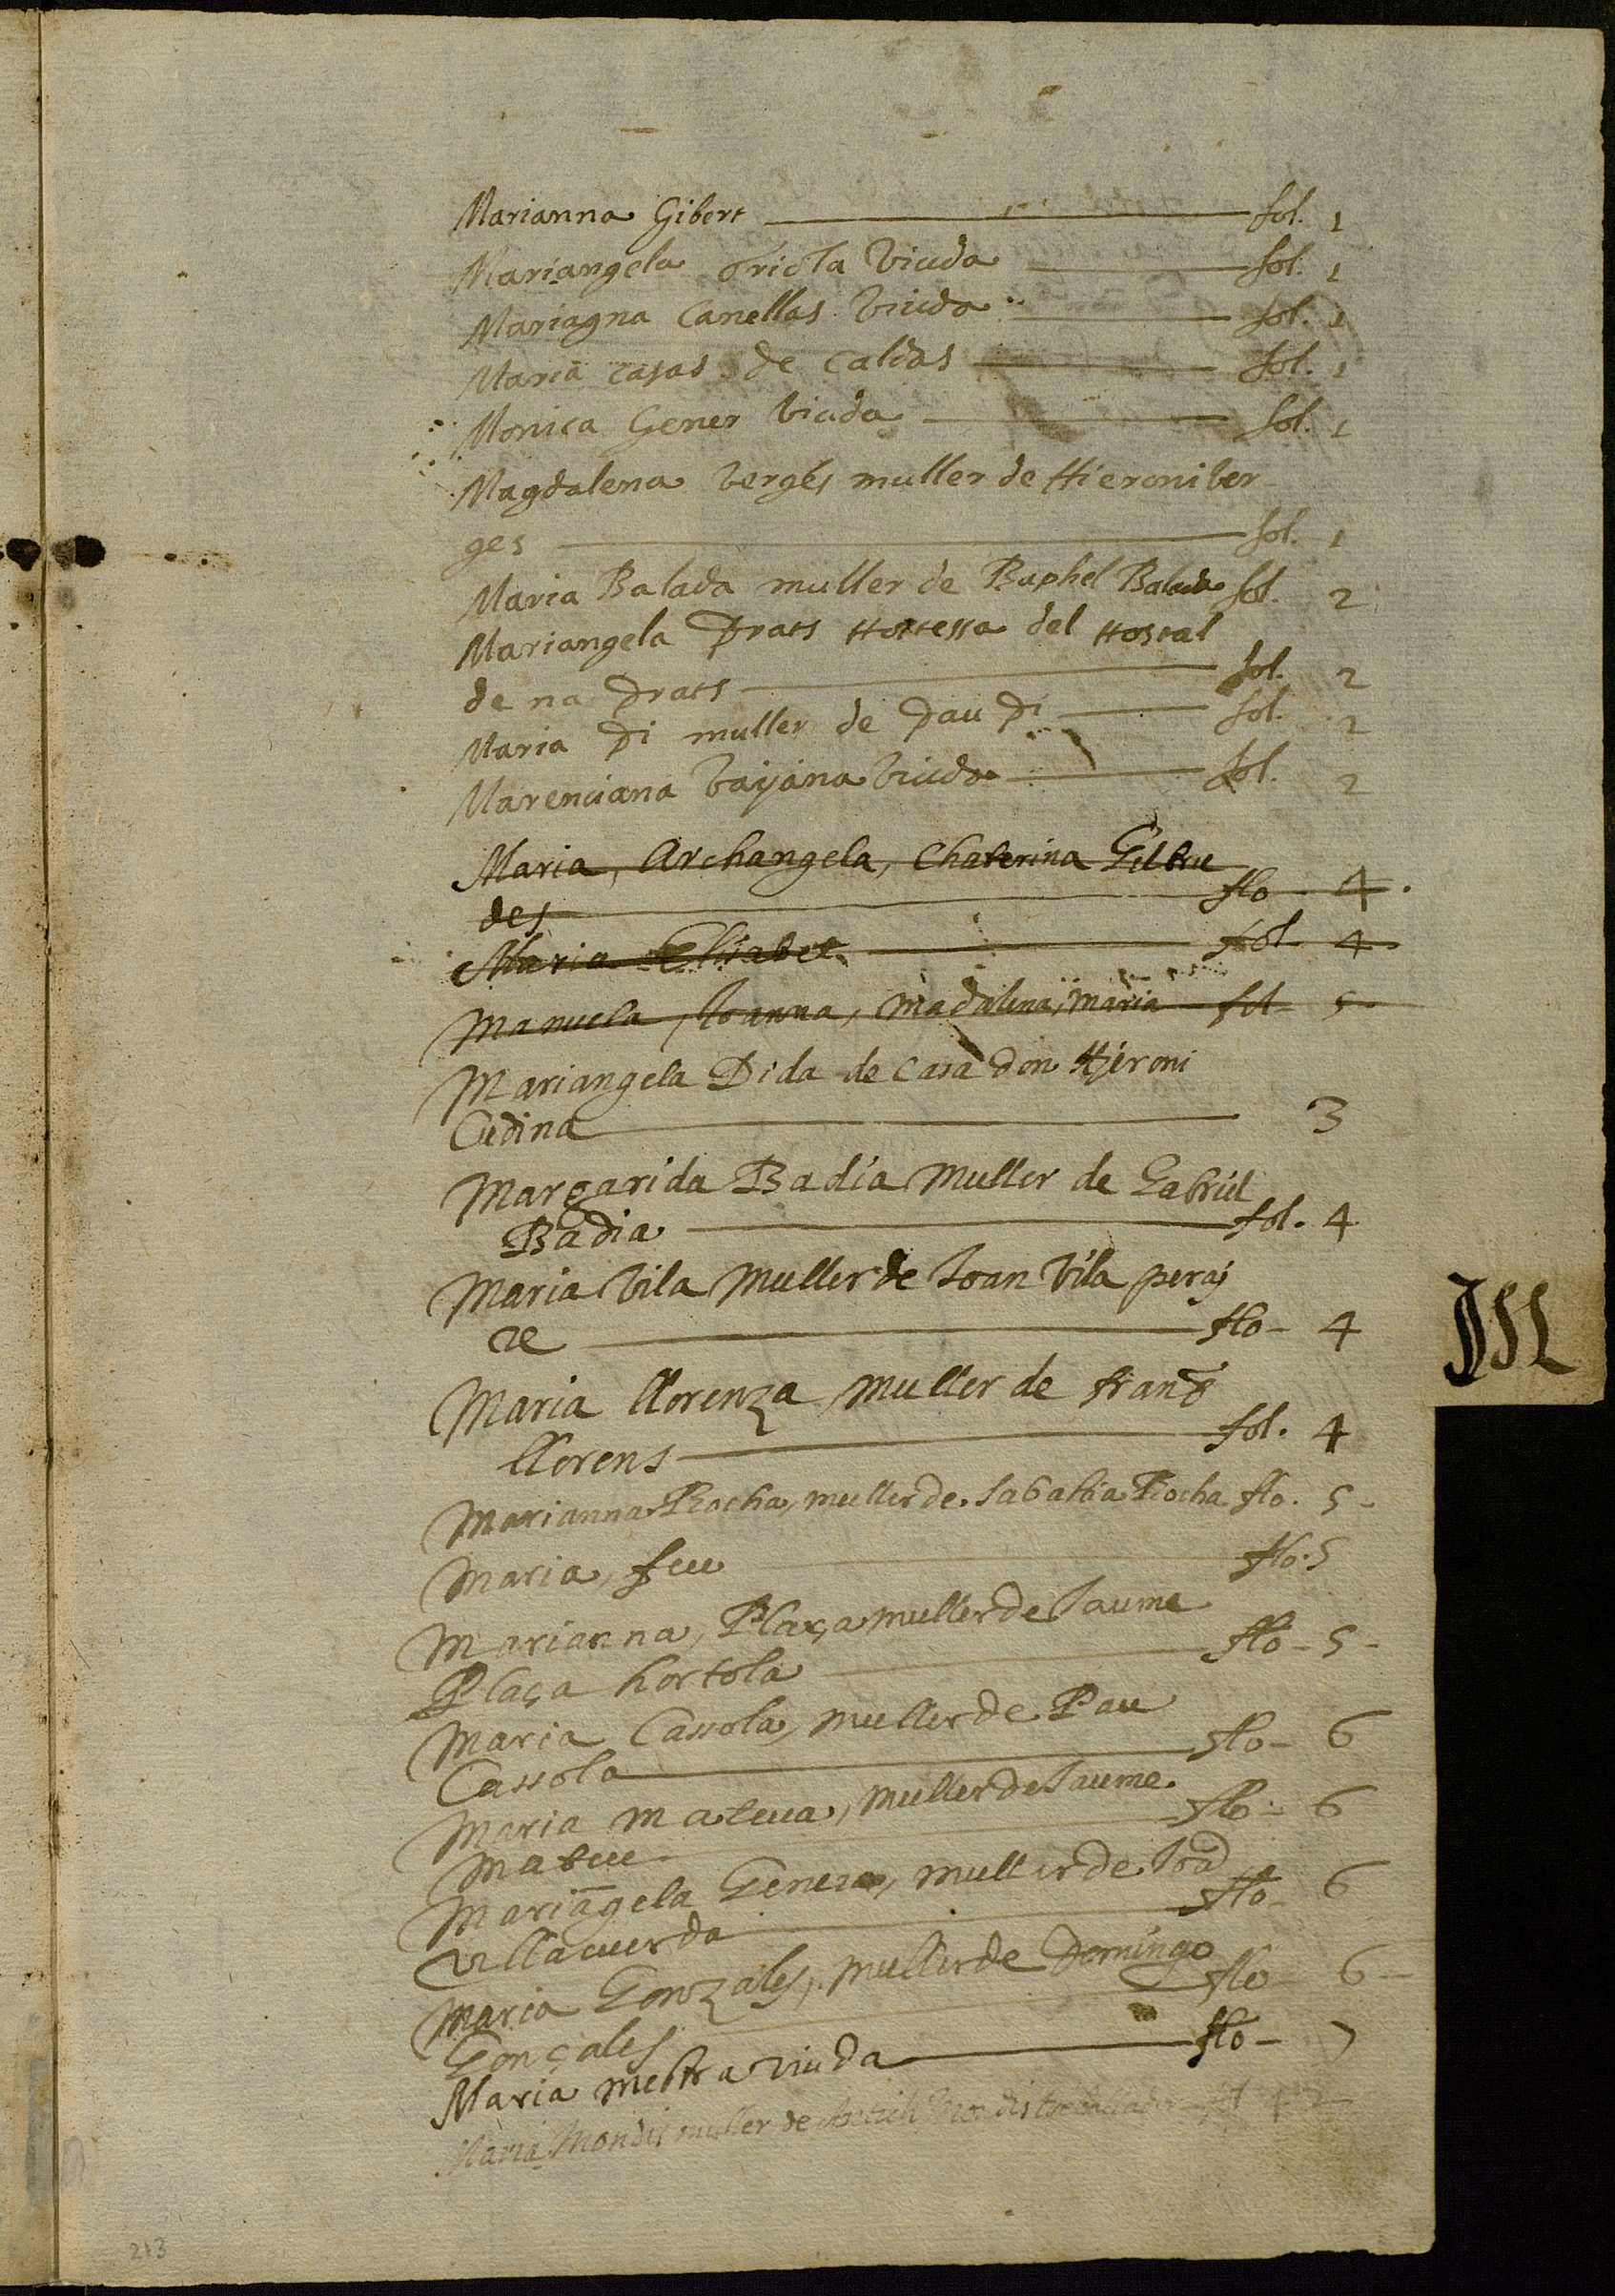 Marianna Gibert fol. 1
Mariangela Oriola Viuda fol. 1
Mariagna Canellas Viuda fol. 1
Maria casas de Caldas fol. 1
Monica Gener Viuda fol. 1
Magdalena Verges muller de Hieroni Ver
ges fol. 1
Maria Balada muller de Raphel Balada fol. 2
Mariangela Prats Hostessa del Hostal
de na Prats fol. 2
Maria Pi muller de Pau Pi fol. 2
Marenciana Vayana Viuda fol. 2
Maria, Archangela, Chaterina Gil
des flo 4
Maria Elisabet fol 4
Manuela, Joanna, Madalena, Maria fol 5
Mariangela Dida de Casa Don Hieroni
Cedina 3
Margarida Badia Muller de Gabriel
Badia fol. 4
Maria Vila Muller de Joan Vila peraj
re flo 4
Maria llorenza muller de fran
llorens fol. 4
Marianna Rocha, muller de Sabastia Rocha flo. 5
Maria, feu flo. 5
Marianna, Plaça muller de Jaume
Plaça hortola flo 5
Maria Cassola, muller de Pau
Cassola flo 6
Maria Mateua, muller de Jaume
Mateu flo 6
Mariāgela Genera, muller de Joā
Villacuerda flo 6
Maria Gonzales, muller de Domingo
Gonçales flo 6
Maria Mestra viuda flo 7
Maria Mondis muller de
JSL
213